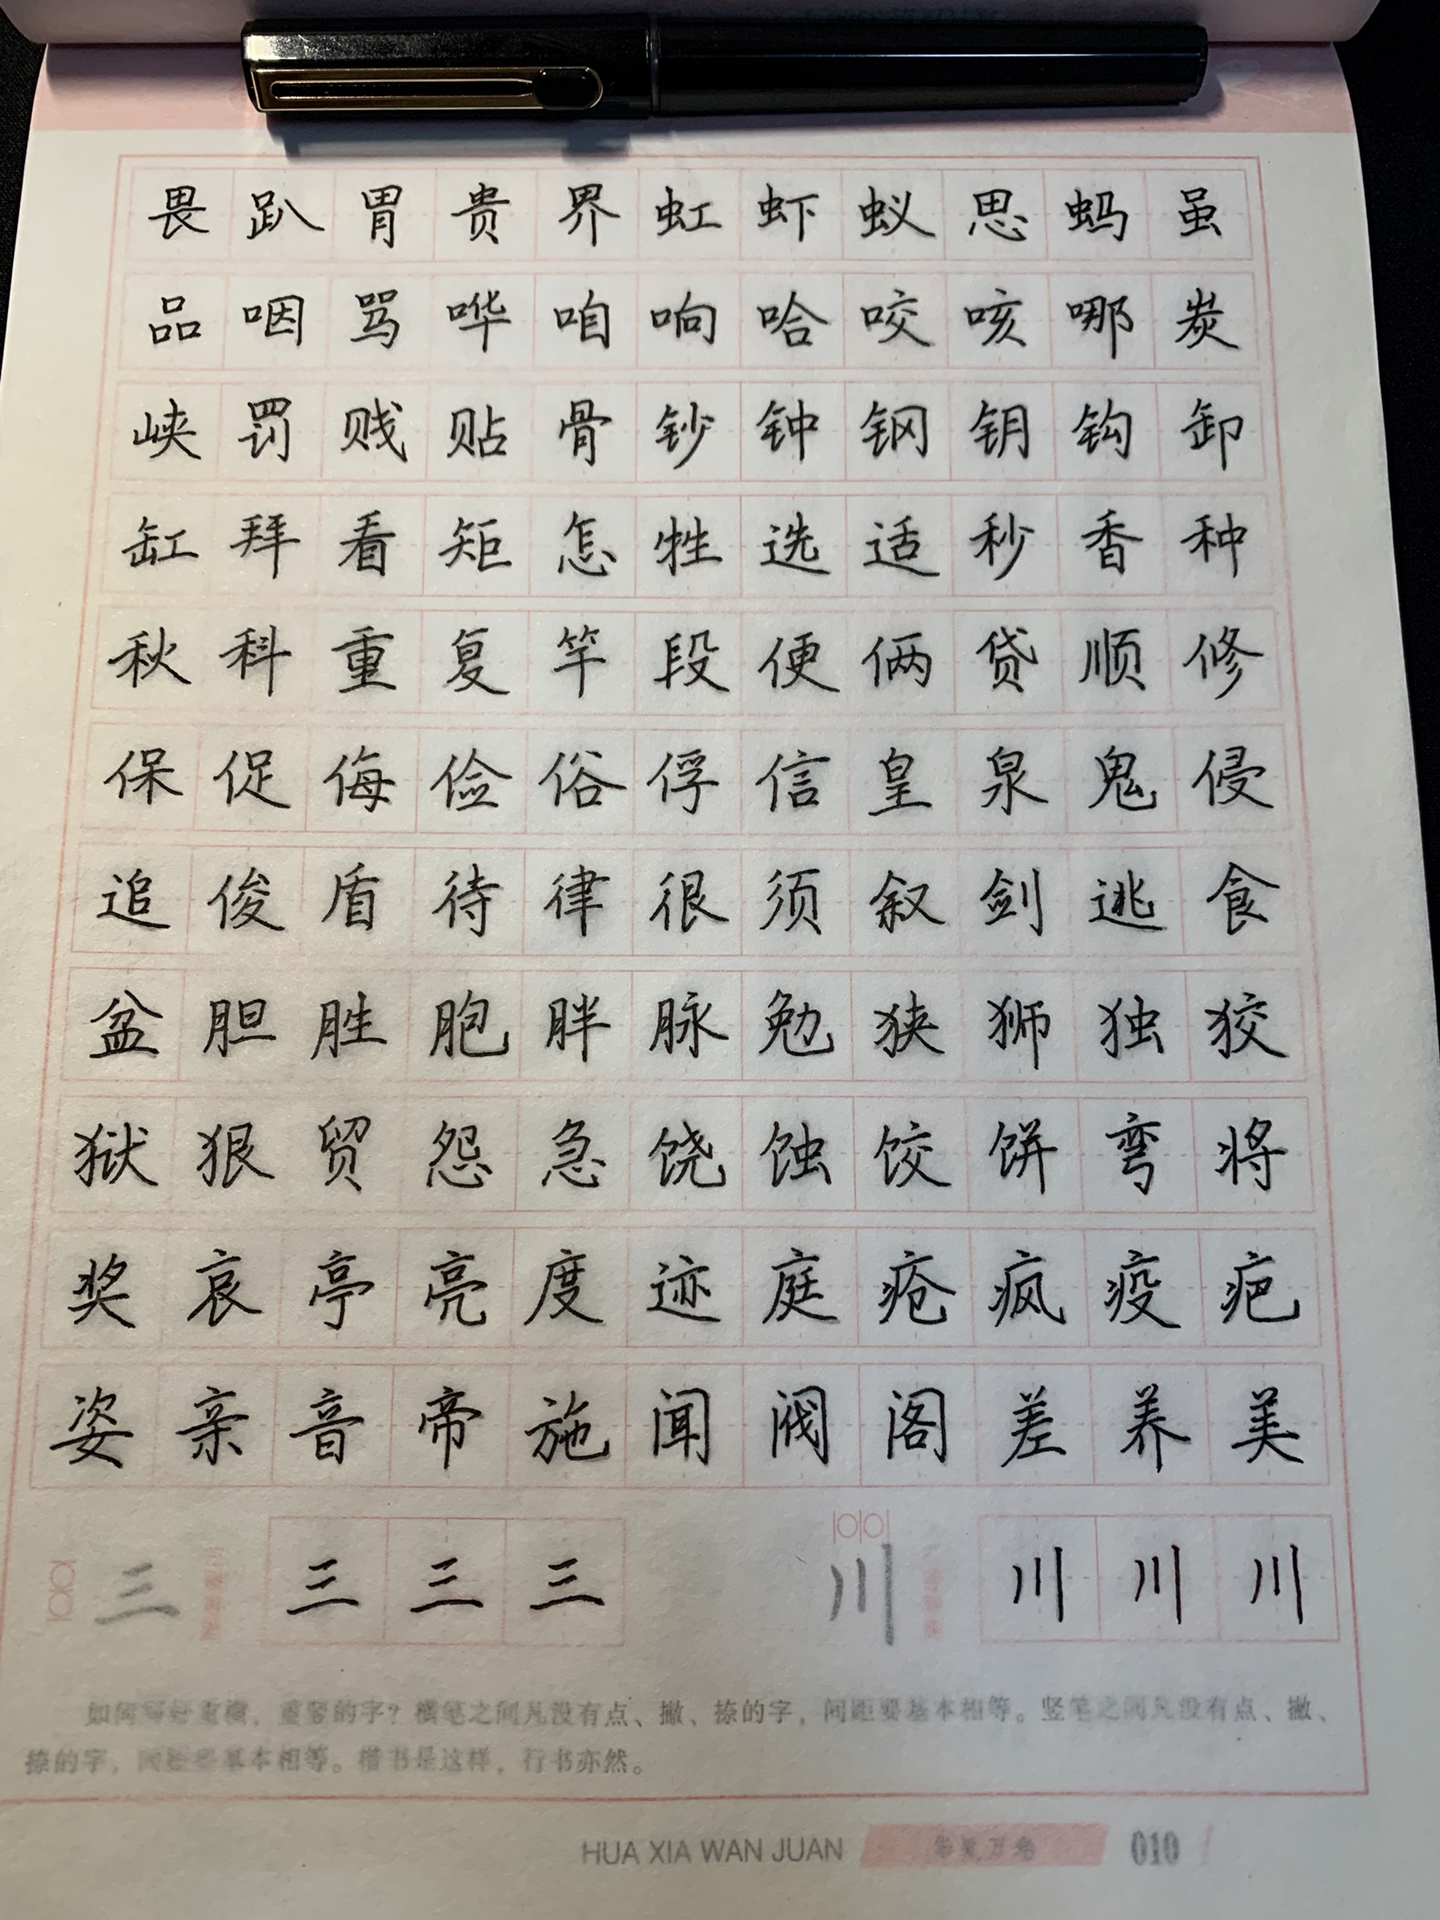 畏趴胃贵界虹虾蚁思蚂虽
品咽骂哗咱响哈咬咳哪炭
峡罚贱贴骨钞钟钢钥钩卸
缸拜看矩怎牲选适秒香种
秋科重复竿段便俩贷顺修
保促侮俭俗俘信皇泉鬼侵
追俊盾待律很须叙剑逃食
盆胆胜胞胖脉勉狭狮独狡
狱狠贸怨急饶蚀饺饼弯将
奖哀亭亮度迹庭疮疯疫疤
姿亲音帝施闻阀阁差养美
三 三 三 三 川 川 川 川
如何写好重横、重竖的字？横笔之间凡没有点、撇、捺的字，间距要基本相等。竖笔之间凡没有点、撇、
捺的字，间距要基本相等。楷书是这样，行书亦然。
HUA XIA WAN JUAN 华夏万卷 010